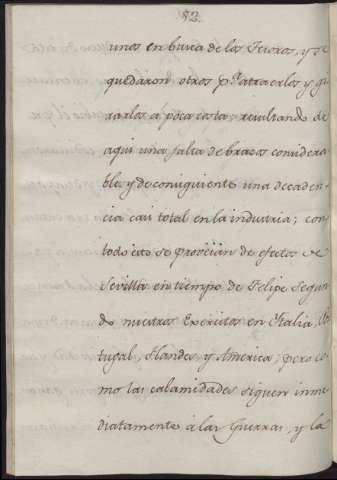 52.
unos en busca de los Tesoros, y se
quedaron otros pª atraerlos, y gi
rarlos á poca costa, resultando de
aqui una falta de brazos considera
ble, y de consiguiente una decaden
cia casi total en la industria; con
todo esto se proveían de efectos de
Sevilla en tiempo de Felipe Segun
do nuestros Exercitos en Italia, Por
tugal, Flandes y America; pero co
mo las calamidades siguen inme
diatamente á las Guerras, y la